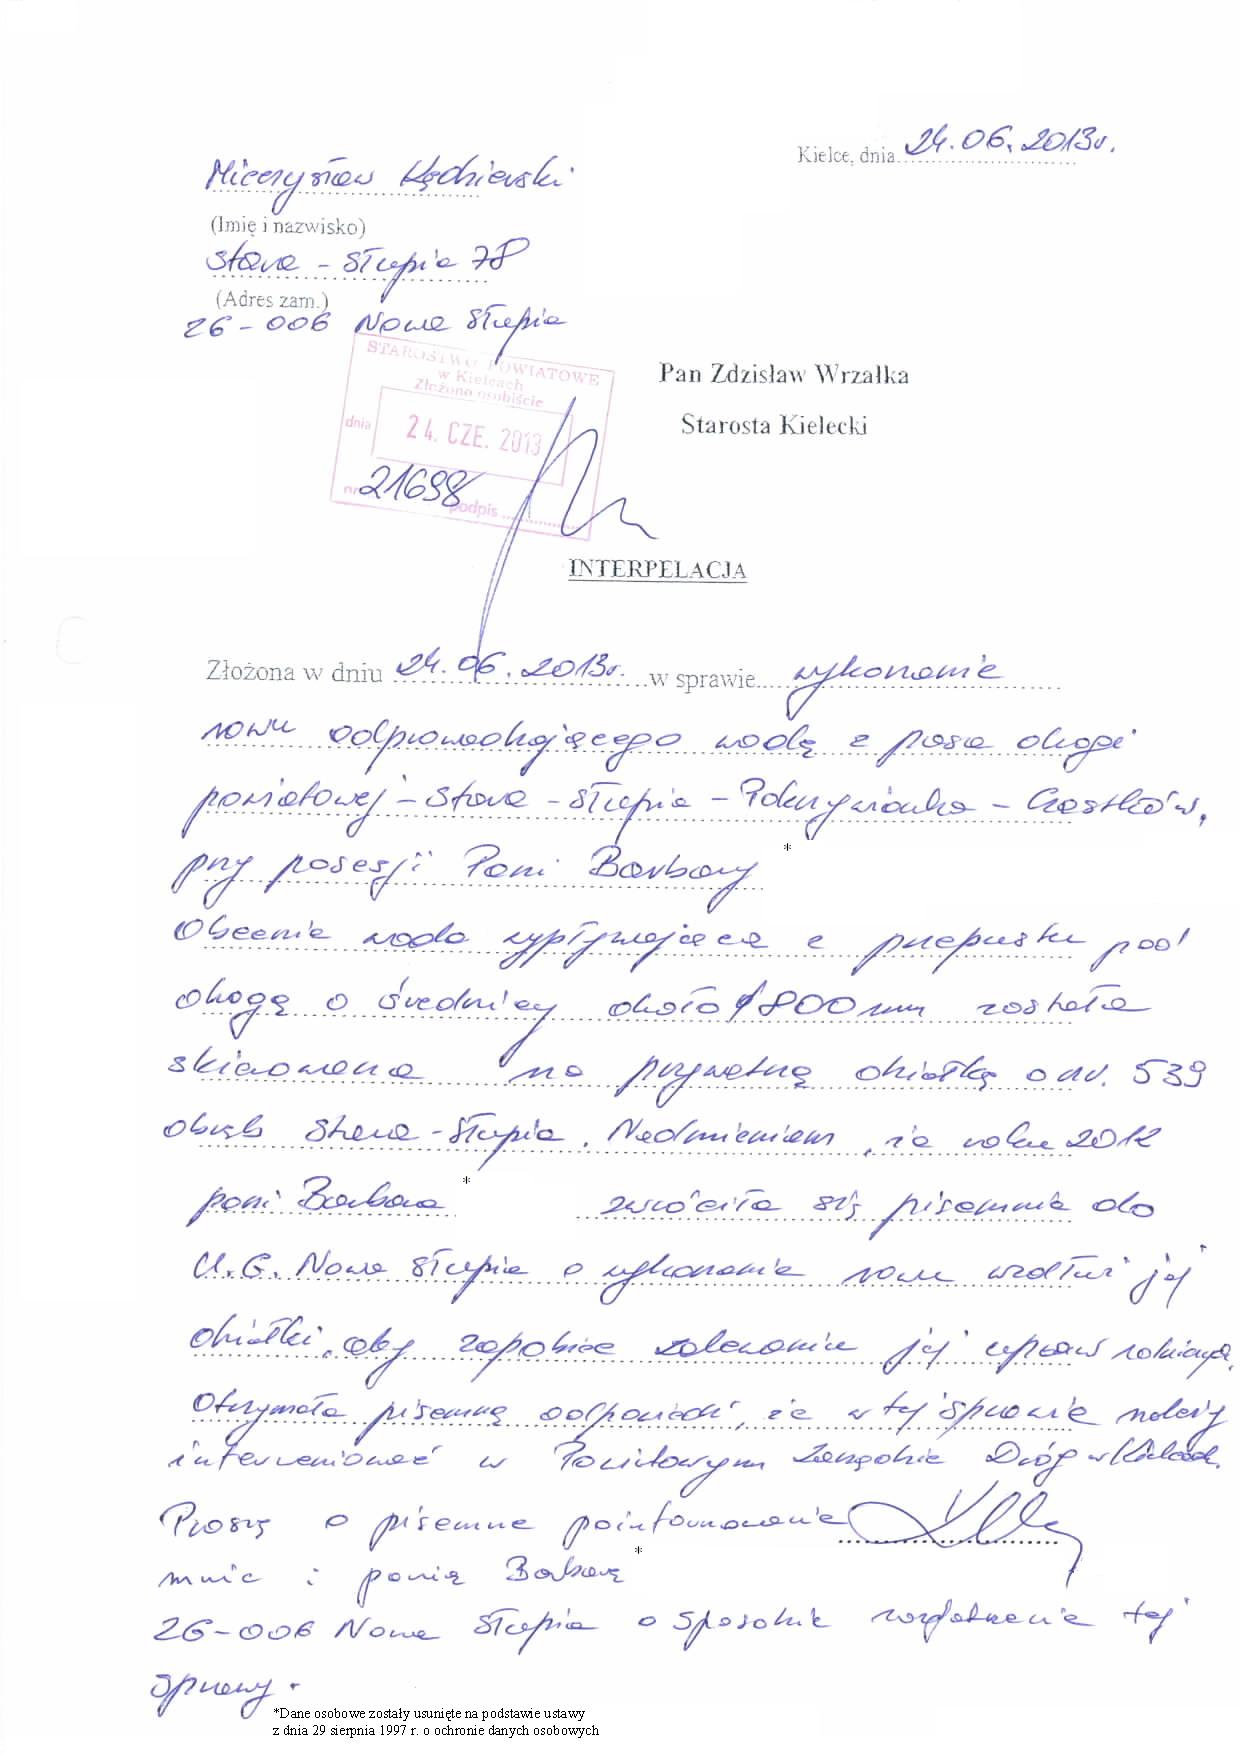 Kielce, dnia 24.06.2013r.
Mieczysław Kędzierski
(Imię i nazwisko)
Stara - Słupia 78
(Adres zam.)
26-006 Nowa Słupia
STAROSTWO POWIATOWE
w Kielcach
Złożono osobiście
dnia 24. CZE. 2013
nr 21698 podpis
Pan Zdzisław Wrzałka
Starosta Kielecki
INTERPELACJA
Złożona w dniu 24.06.2013r. w sprawie wykonanie
rowu odprowadzającego wodę z pasa drogi
powiatowej - Stara - Słupia - Pokrzywianka - Czostków,
przy posesji Pani Barbary *
Obecnie woda wypływająca z przepustu pod
drogą o średnicy około 800 mm została
skierowana na prywatną działkę o nr. 539
obręb Stara - Słupia. Nadmieniam, że roku 2012
pani Barbara * zwróciła się pisemnie do
U.G. Nowa Słupia o wykonanie rowu wzdłuż jej
działki, aby zapobiec zalewaniu jej upraw rolnych.
Otrzymała pisemną odpowiedź, że w tej sprawie należy
interweniować w Powiatowym Zarządzie Dróg w Kielcach.
Proszę o pisemne poinformowanie
mnie i panią Barbarę *
26-006 Nowa Słupia o sposobie rozpatrzenia tej
sprawy.
*Dane osobowe zostały usunięte na podstawie ustawy
z dnia 29 sierpnia 1997 r. o ochronie danych osobowych